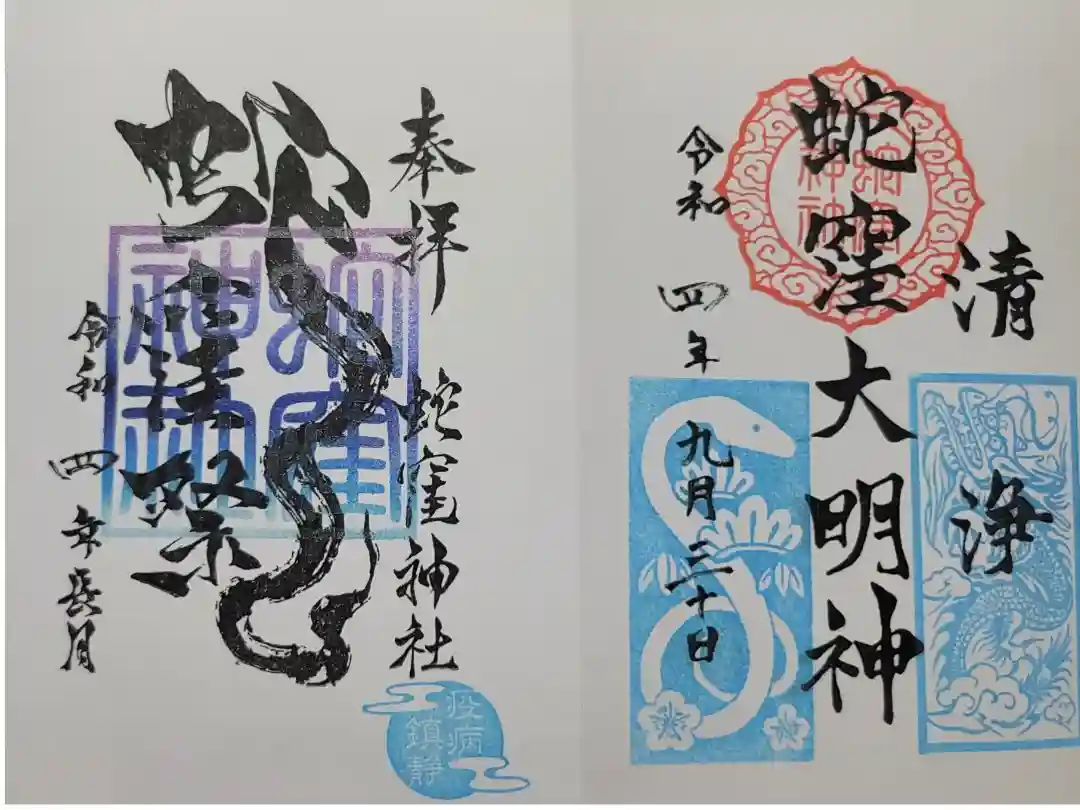 清浄
蛇窪大明神
令和四年九月三十日
奉拝 蛇窪神社
疫病鎮静
蛇窪祭
蛇窪
神社
令和四年長月